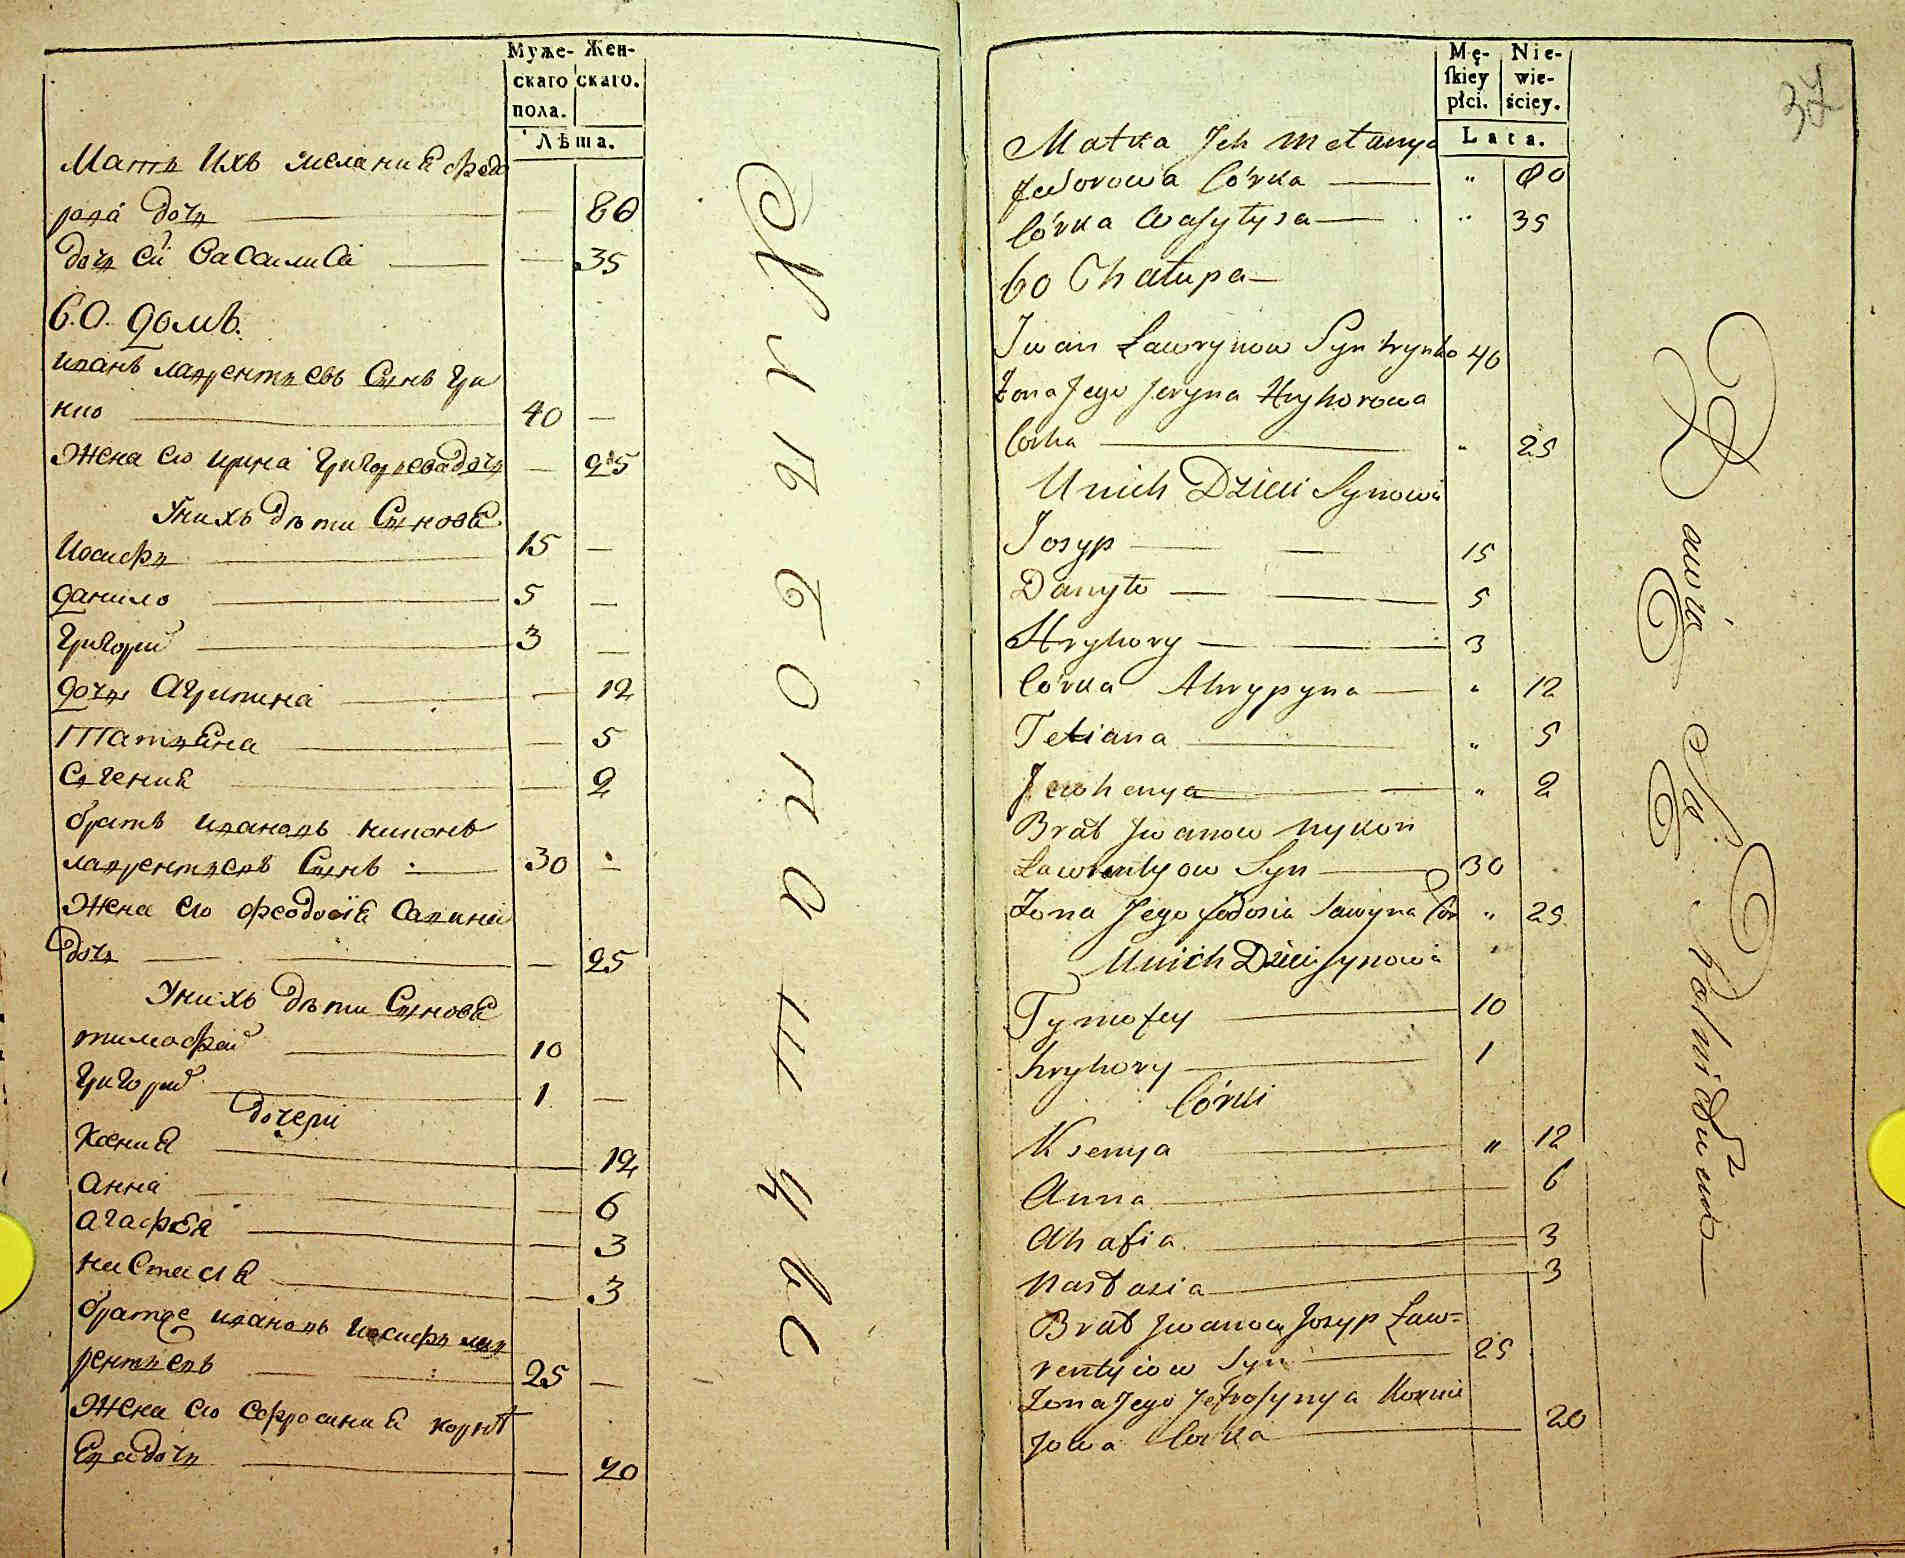 Муже-
скаго
пола.
Жен-
скаго.
Лѣта.
Мать Ихъ Мелания Федо
рова дочь 80
дочь ей Василиса 35
60. домъ.
иванъ лаврентьевъ Сынъ Гри
нко 40
Жена его ирина Григорьева дочь 25
Унихъ дѣти Сыновя
Иосифъ 15
данило 5
Григорий 3
дочь Агрипина 12
Татьяна 5
Евгения 2
братъ ивановъ никонъ
лаврентьевъ Сынъ 30
Жена его феодосия Савина
дочь 25
Унихъ дѣти Сыновя
тимофей 10
Григорий 1
дочери
Ксения 12
Анна 6
агафея 3
настасья 3
братъ ивановъ Иосифъ лав
рентьевъ 25
Жена его Ефросиния корнѣ
ева дочь 20
Mę-
skiey
płci.
Nie-
wie-
ściey.
Lata.
37
Matka Jch Mełanya
Fedorowa Córka " 80
Córka Wasyłysa " 35
60 Chałupa
Jwan Ławrynow Syn Hrynko 40
Żona Jego Jeryna Hryhorowa
Corka " 25
Unich Dzieci Synowie
Josyp 15
Danyło 5
Hryhory 3
Córka Ahrypyna " 12
Tetiana " 5
Jewhenya " 2
Brat Jwanow Nykon
Ławrentyow Syn 30
Żona Jego Fedosia Sawyna Cór " 25
Unich Dzieci Synowie
Tymofey 10
hryhory 1
Córki
Ksenya " 12
Anna 6
Ahafia 3
Nastasia 3
Brat Jwanow Josyp Ław=
rentyiow Syn 25
Żona Jego Jefrosynya Kornie
jowa Corka 20